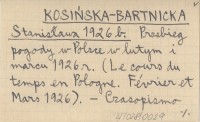 KOSIŃSKA-BARTNICKA
Stanisława 1926 b. Przebieg
pogody w Polsce w lutym i
marcu 1926 r. (Le cours du
temps en Pologne. Février et
Mars 1926). — Czasopismo